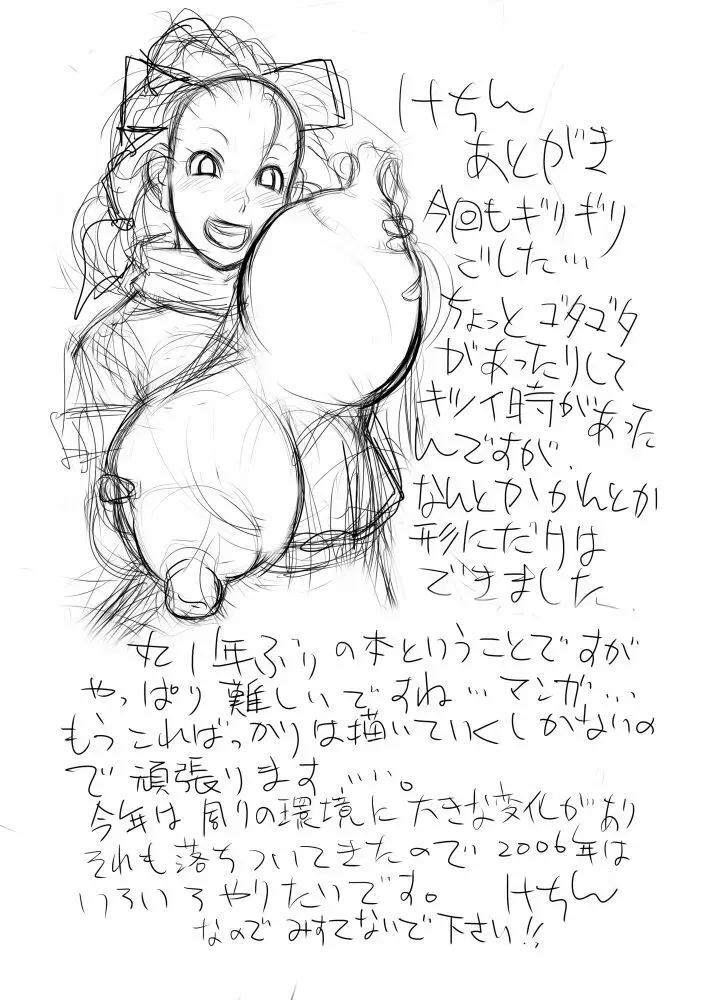 けちん
あとがき
今回もギリギリ
でした…
ちょっとゴタゴタ
があったりして
キツイ時があった
んですが、
なんとかかんとか
形にだけは
できました
1年ぶりの本ということですが
やっぱり難しいですね…マンガ…
もうこればっかりは描いていくしかないの
で頑張ります…。
今年は周りの環境に大きな変化があり
それも落ちついてきたので2006年は
いろいろやりたいです。 けちん
なのでみすてないで下さい!!